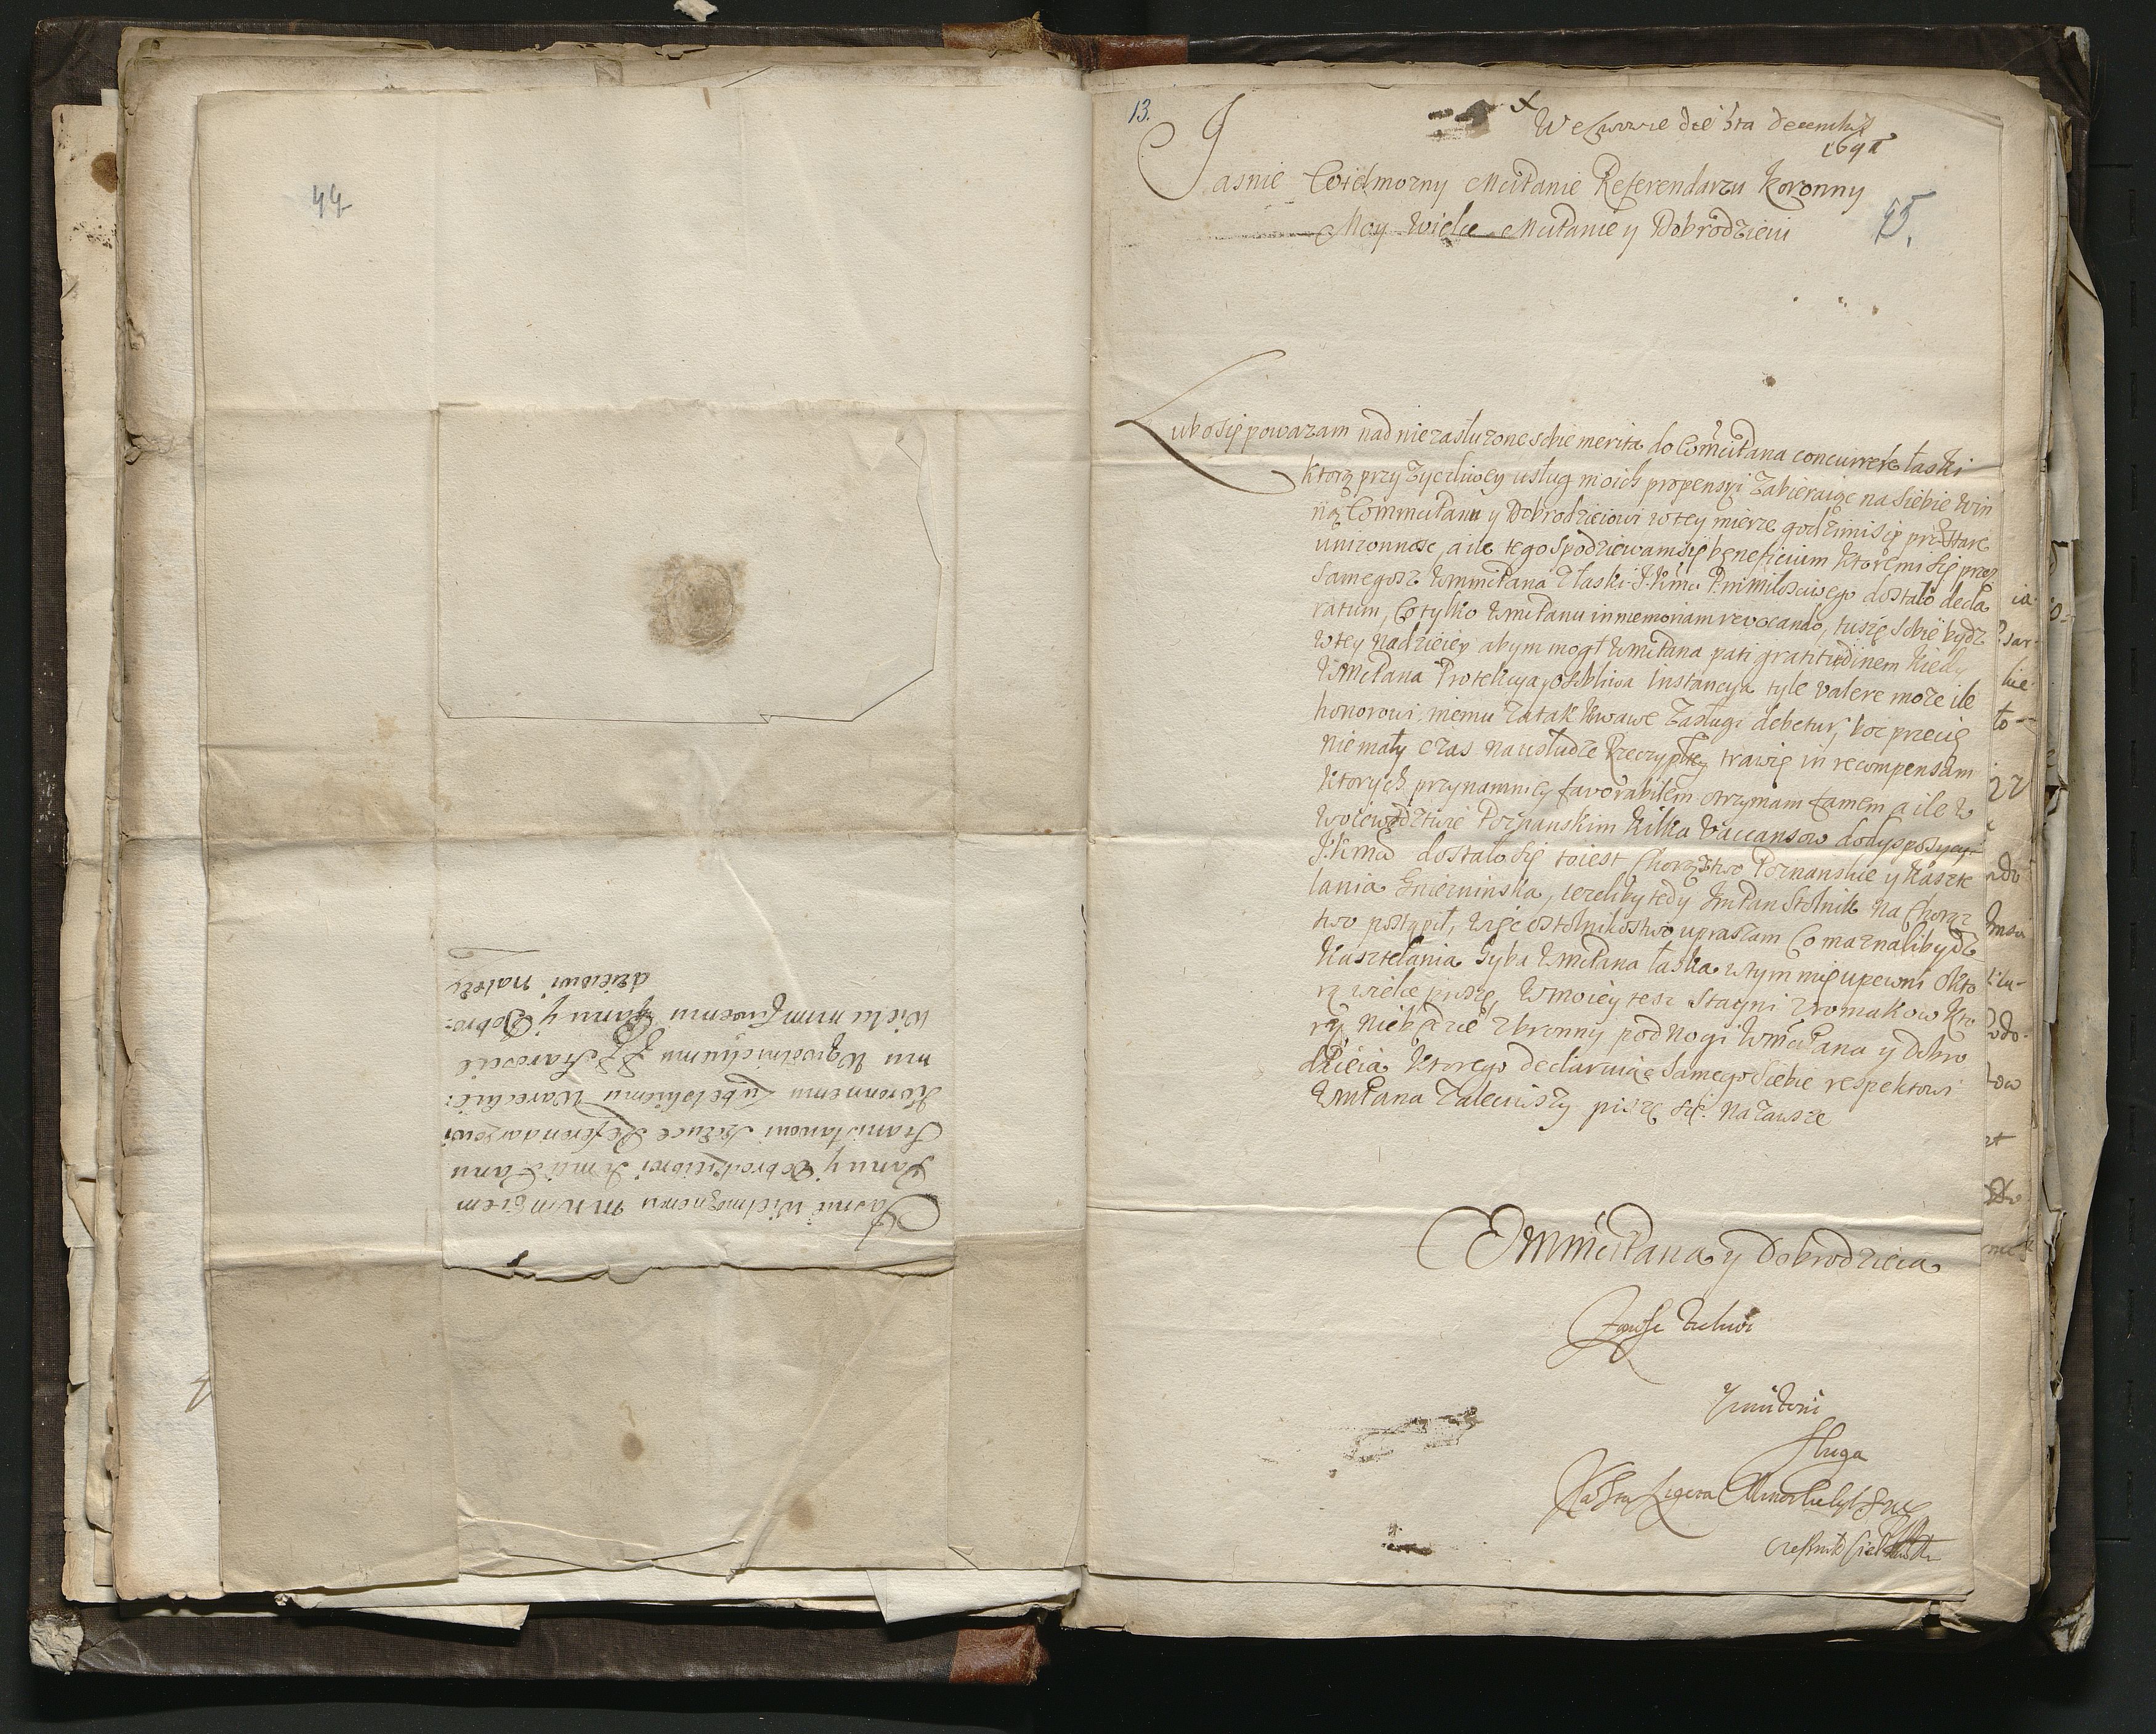 44
Jasnie Wielmoznemu mnimgiem
Panu y Dobrodzieiowi Jmci Panu
Stanisławowi Szczuce Referendarzowi
Koronnemu Lubelskiemu Wareckie:
mu Staroscie
Wielu mmsciwemu Panu y Dobro:
dzieiowi nalezy
13.
We Lwowie die 5ta decembris
169
Jasnie Wielmozny MciPanie Referendarzu Koronny
Moy wielce MciPanie y Dobrodzieiu
45.
Lubo się powazam nad niezasłuzone sobie merita do WmciPana concurrere łaski
ktorą przy zyczliwey usług moich propensyi zabieraiąc na siebie win
ną WmmciPanu y Dobrodzieiowi w tey mierze godzi mi się
unizonnosc, a ile tego spodziewam się beneficium ktore mi się przez
samegosz WmmciPana z łaski J.Kmci P. m Miłosciwego dostało decla
ratum, co tylko WmciPanu in memoriam revocando, tuszę sobie bydz
w tey nadzieiey abym mogł WmciPana pati gratitudinem kiedy
WMciPana Protekcya, osobliwa instancya tyle valere moze ile
honorowi memu za tak krwawe zasługi debetur, boc przecię
nie mały czas na usłudze Rzeczyptey trawię in recompensam
ktorych przynamniey favorabilem otrzymam famem a ile w
woiewodztwie Poznanskim kilka vaccansow do dysposycyi
J.Kmci dostało się to iest Chorąstwo Poznanskie y Kaszte
lania Gniezninska, iezeliby tedy JmPan Stolnik na Chorąz
two postąpił, więc o stolnikostwo upraszam Co maznali bydz
Kasztelania Gyba WmciPana łaska w tym mię upewni o kto
rą wielce proszę, W moiey tesz stayni z romakow kto
ry nie będzie zbronny pod nogi WmciPana y dobro
dzieia ktorego declaruiąc samego siebie respektowi
WmPana zaleciwszy piszę się. na zawsze
WmmciPana y Dobrodzieia
Zawsze
Sługa